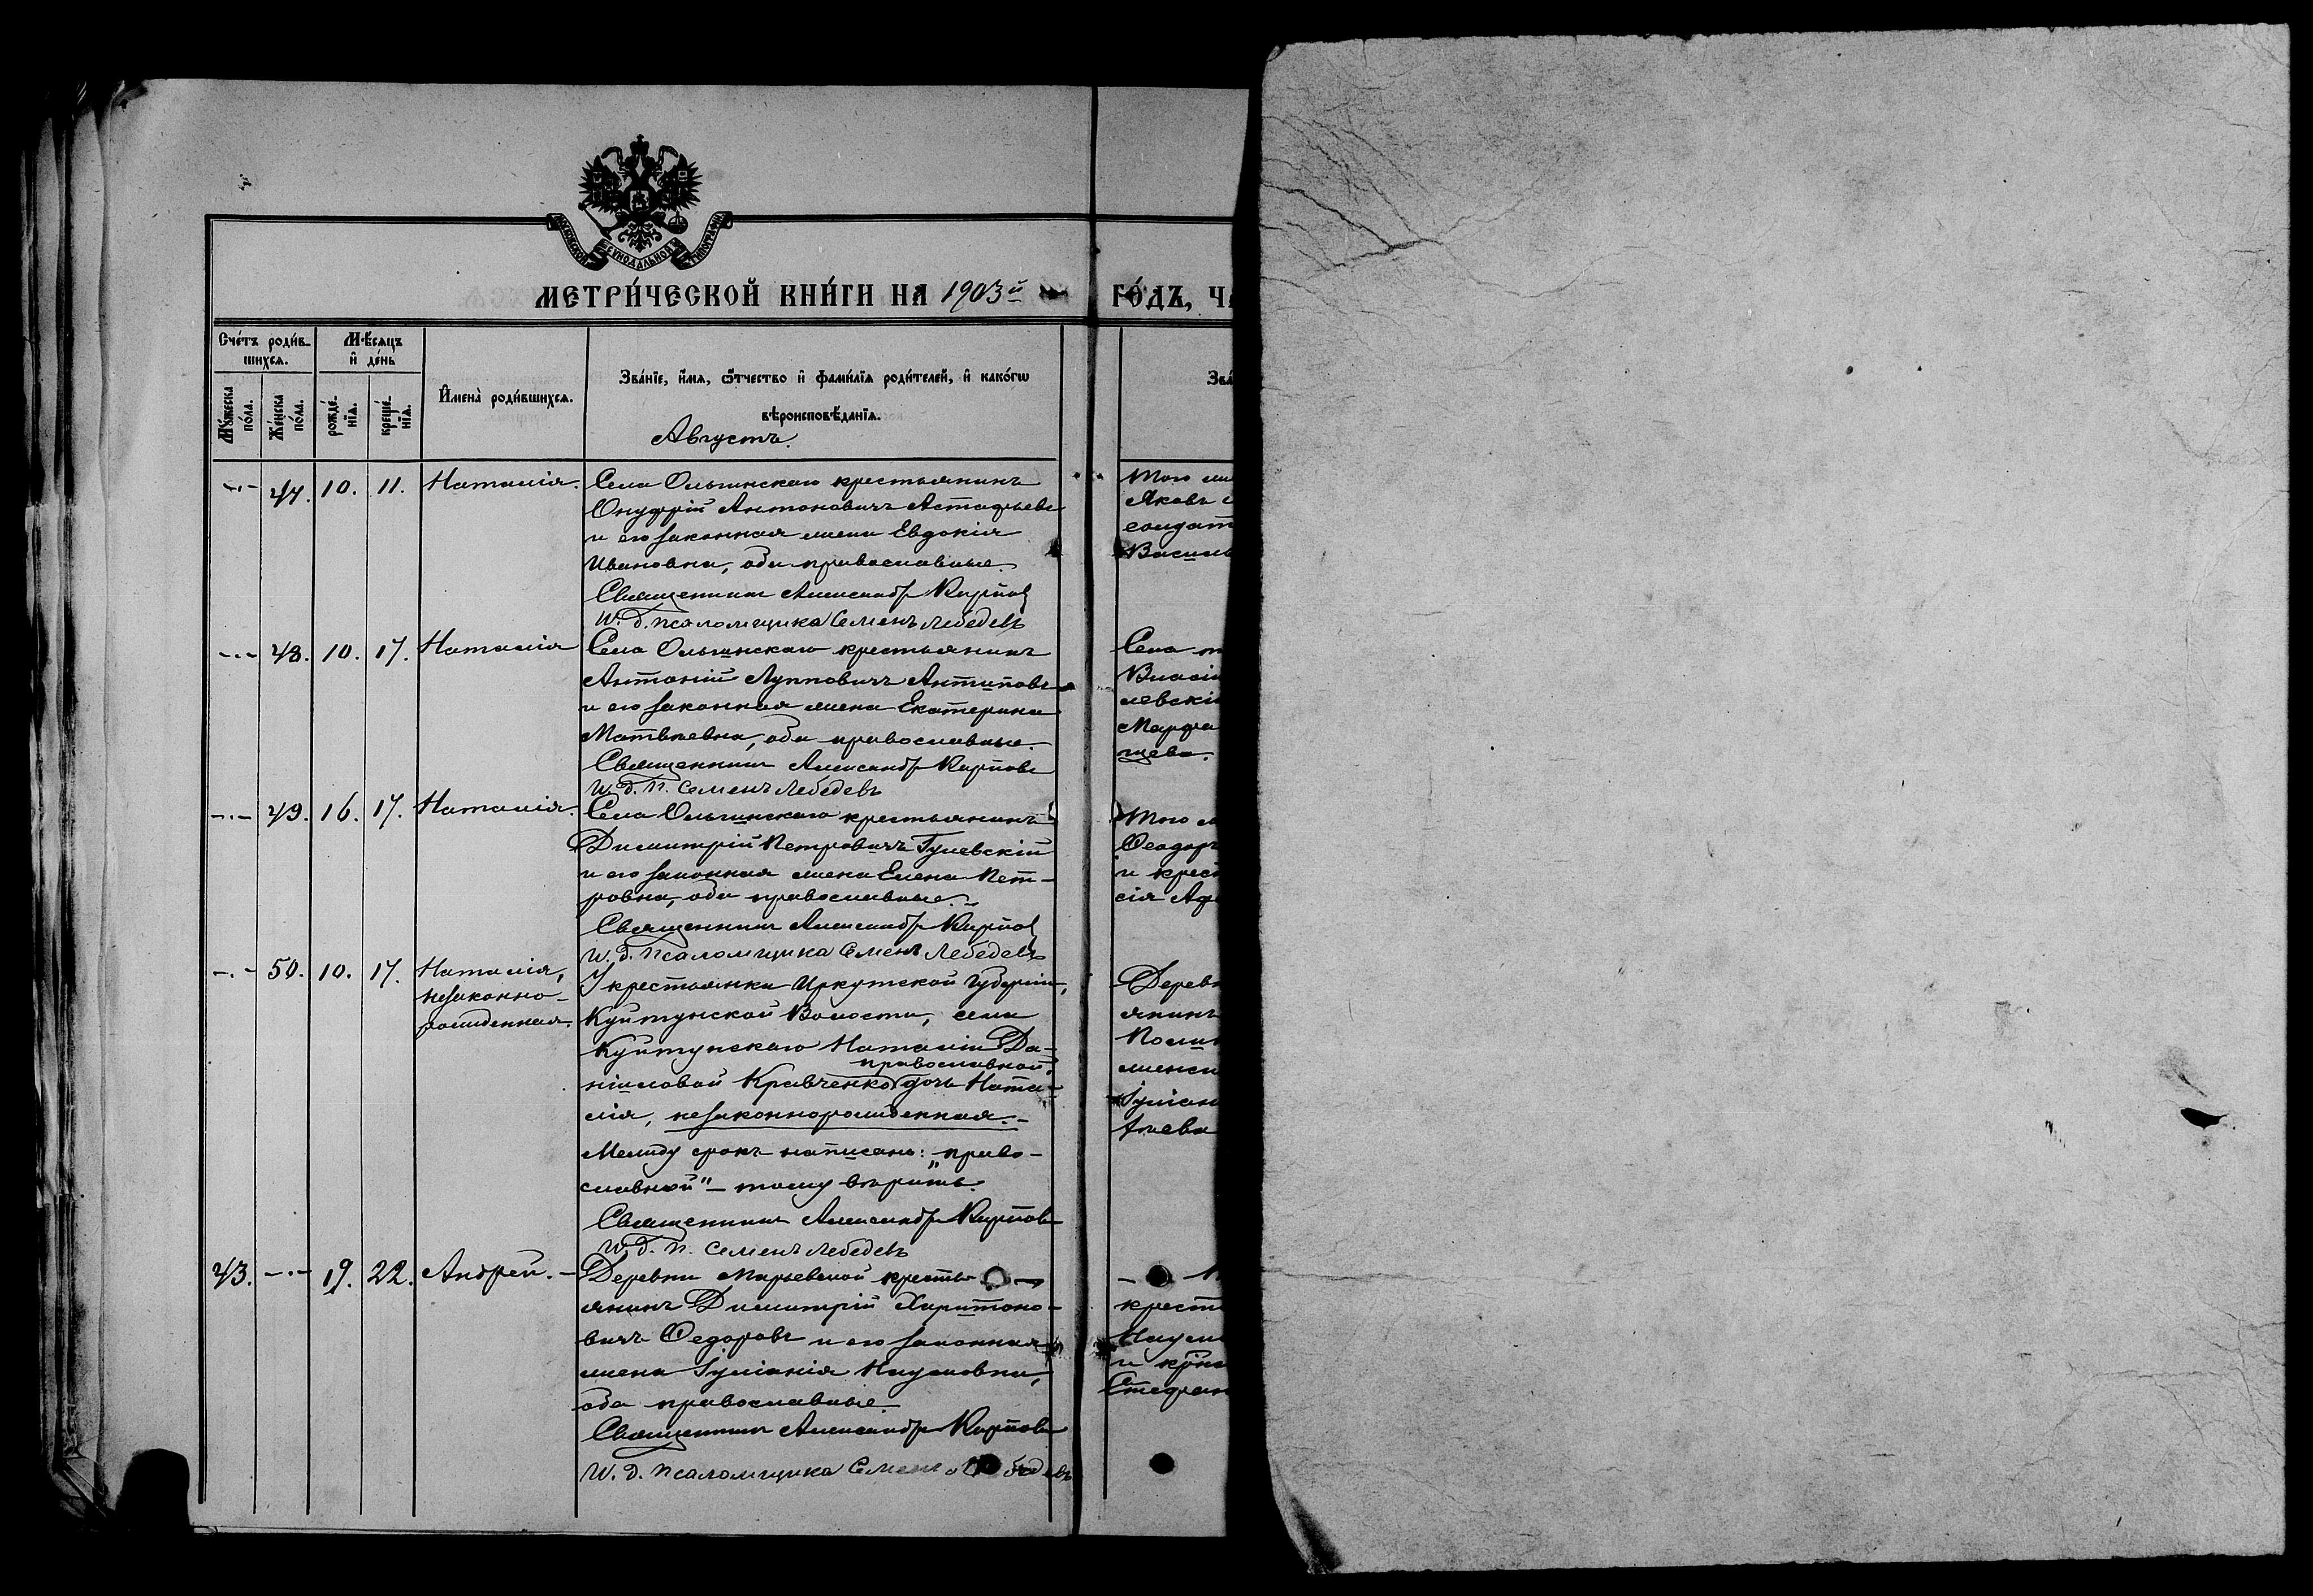 МОСКОВСКОЙ СѴНОДАЛЬНОЙ ТИПОГРАФІИ
МЕТРИ́ЧЕСКОЙ КНИ́ГИ НА 1903й
ГО́ДЪ, Ч
Сче́тъ роди́в-
шихся.
Мѣ́сяцъ
и҆ де́нь
Му́жеска
по́ла.
Же́нска
по́ла.
рожде́-
нїя.
креще́-
нїя.
И҆мена̀ роди́вшихся.
Зва́нїе, и҆́мя, ѻ҆́тчество и҆ фами́лїя роди́телей, и҆ како́гѡ
вѣроисповѣ́данїя.
Зва
Августъ.
-"- 47. 10. 11. Наталія. Села Ольгинскаго крестьянинъ
Онуфрій Антоновичъ Астафьевъ
и его законная жена Евдокія
Ивановна, оба православные.
Священникъ Александръ Карповъ
И. д. псаломщика Семенъ Лебедевъ
-"- 48. 10. 17. Наталія Села Ольгинскаго крестьянинъ
Антоній Лупповичъ Антиповъ
и его законная жена Екатерина
Матвѣевна, оба православные.
Священникъ Александръ Карповъ
И. д. п. Семенъ Лебедевъ
-"- 49. 16. 17. Наталія. Села Ольгинскаго крестьянинъ
Димитрій Петровичъ Гулевскій
и его законная жена Елена Пет-
ровна, оба православные.
Священникъ Александръ Карповъ
И. д. псаломщика Семенъ Лебедевъ
-"- 50. 10. 17. Наталія, У крестьянки Иркутской губерніи,
незаконно- Куйтунской Волости, села
рожденная. Куйтунскаго Наталіи Да-
православной,
ніиловой Кравченко дочь Ната-
лія, незаконнорожденная.-
Между срокъ написано: „право-
славной" - тому вѣрить.
Священникъ Александръ Карповъ
И. д. п. Семенъ Лебедевъ
43. -"- 19. 22. Андрей. - Деревни Марьевской кресть-
янинъ Димитрій Харитоно-
вичъ Ѳедоровъ и его законная
жена Іуліанія Наумовна,
оба православные.
Священникъ Александръ Карповъ
И. д. псаломщика Семенъ Лебедевъ
Того
Яковъ
солдат
Василь
Села
Власій
левскі
Марфа
щева.
Того
Ѳеодоръ
и крест
сія Аф
Дерев
янинъ
женск
Іуліан
крест
Наум
и крес
Стефан